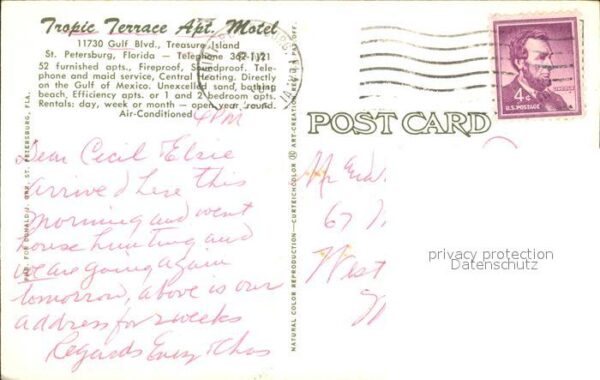 Tropic Terrace Apt. Motel
11730 Gulf Blvd., Treasure Island
St. Petersburg, Florida — Telephone 362-1121
52 furnished apts., Fireproof, Soundproof. Tele-
phone and maid service, Central Heating. Directly
on the Gulf of Mexico. Unexcelled sand, bathing
beach, Efficiency apts. or 1 and 2 bedroom apts.
Rentals: day, week or month — open year 'round.
Air-Conditioned
4PM
Dear Cecil Elsie
arrived here this
morning and went
house hunting and
we are going again
tomorrow, above is our
address for 2 weeks
Regards
PUB. FOR DONALD J. ST. PETERSBURG, FLA.
NATURAL COLOR REPRODUCTION — CURTEICHCOLOR ® ART-CREATION
REG. U.S.A. PAT. OFF.
POST CARD
4¢
U.S. POSTAGE
LINCOLN
Mr
67
West
privacy protection
Datenschutz